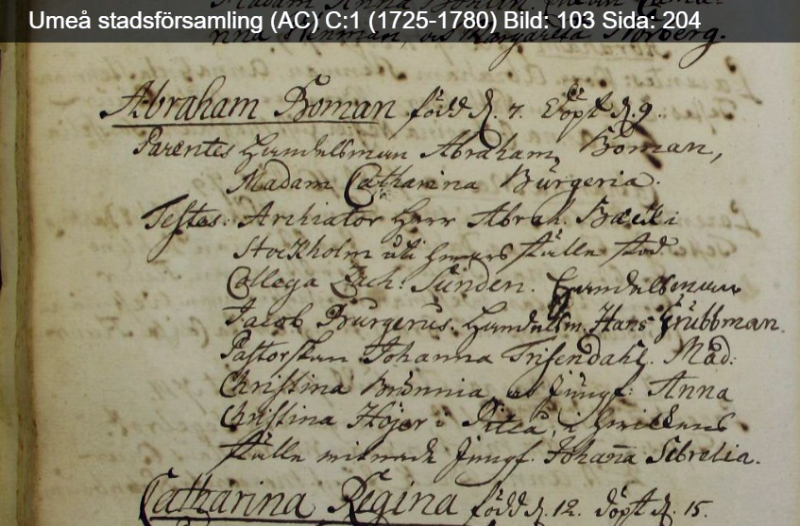 Umeå stadsförsamling (AC) C:1 (1725-1780) Bild: 103 Sida: 204
Margareta Norberg.
Abraham Boman född d. 7. döpt d. 9.
Parentes Handelsman Abraham Boman,
Madam Catharina Burgeria.
Testes: Archiator Herr Abrah. Bæck i
Stockholm uti hwars ställe stod
Collega Zach: Sunden. Handelsman
Jacob Burgerus. Handelsm. Hans Grubbman.
Pastorskan Johanna Trisendahl. Mad:
Christina Brunnia, och Jungf: Anna
Christina Höjer i Piteå, i hwilkens
ställe witnade Jungf. Johanna Sebrelia.
Catharina Regina född d. 12. döpt d. 15.